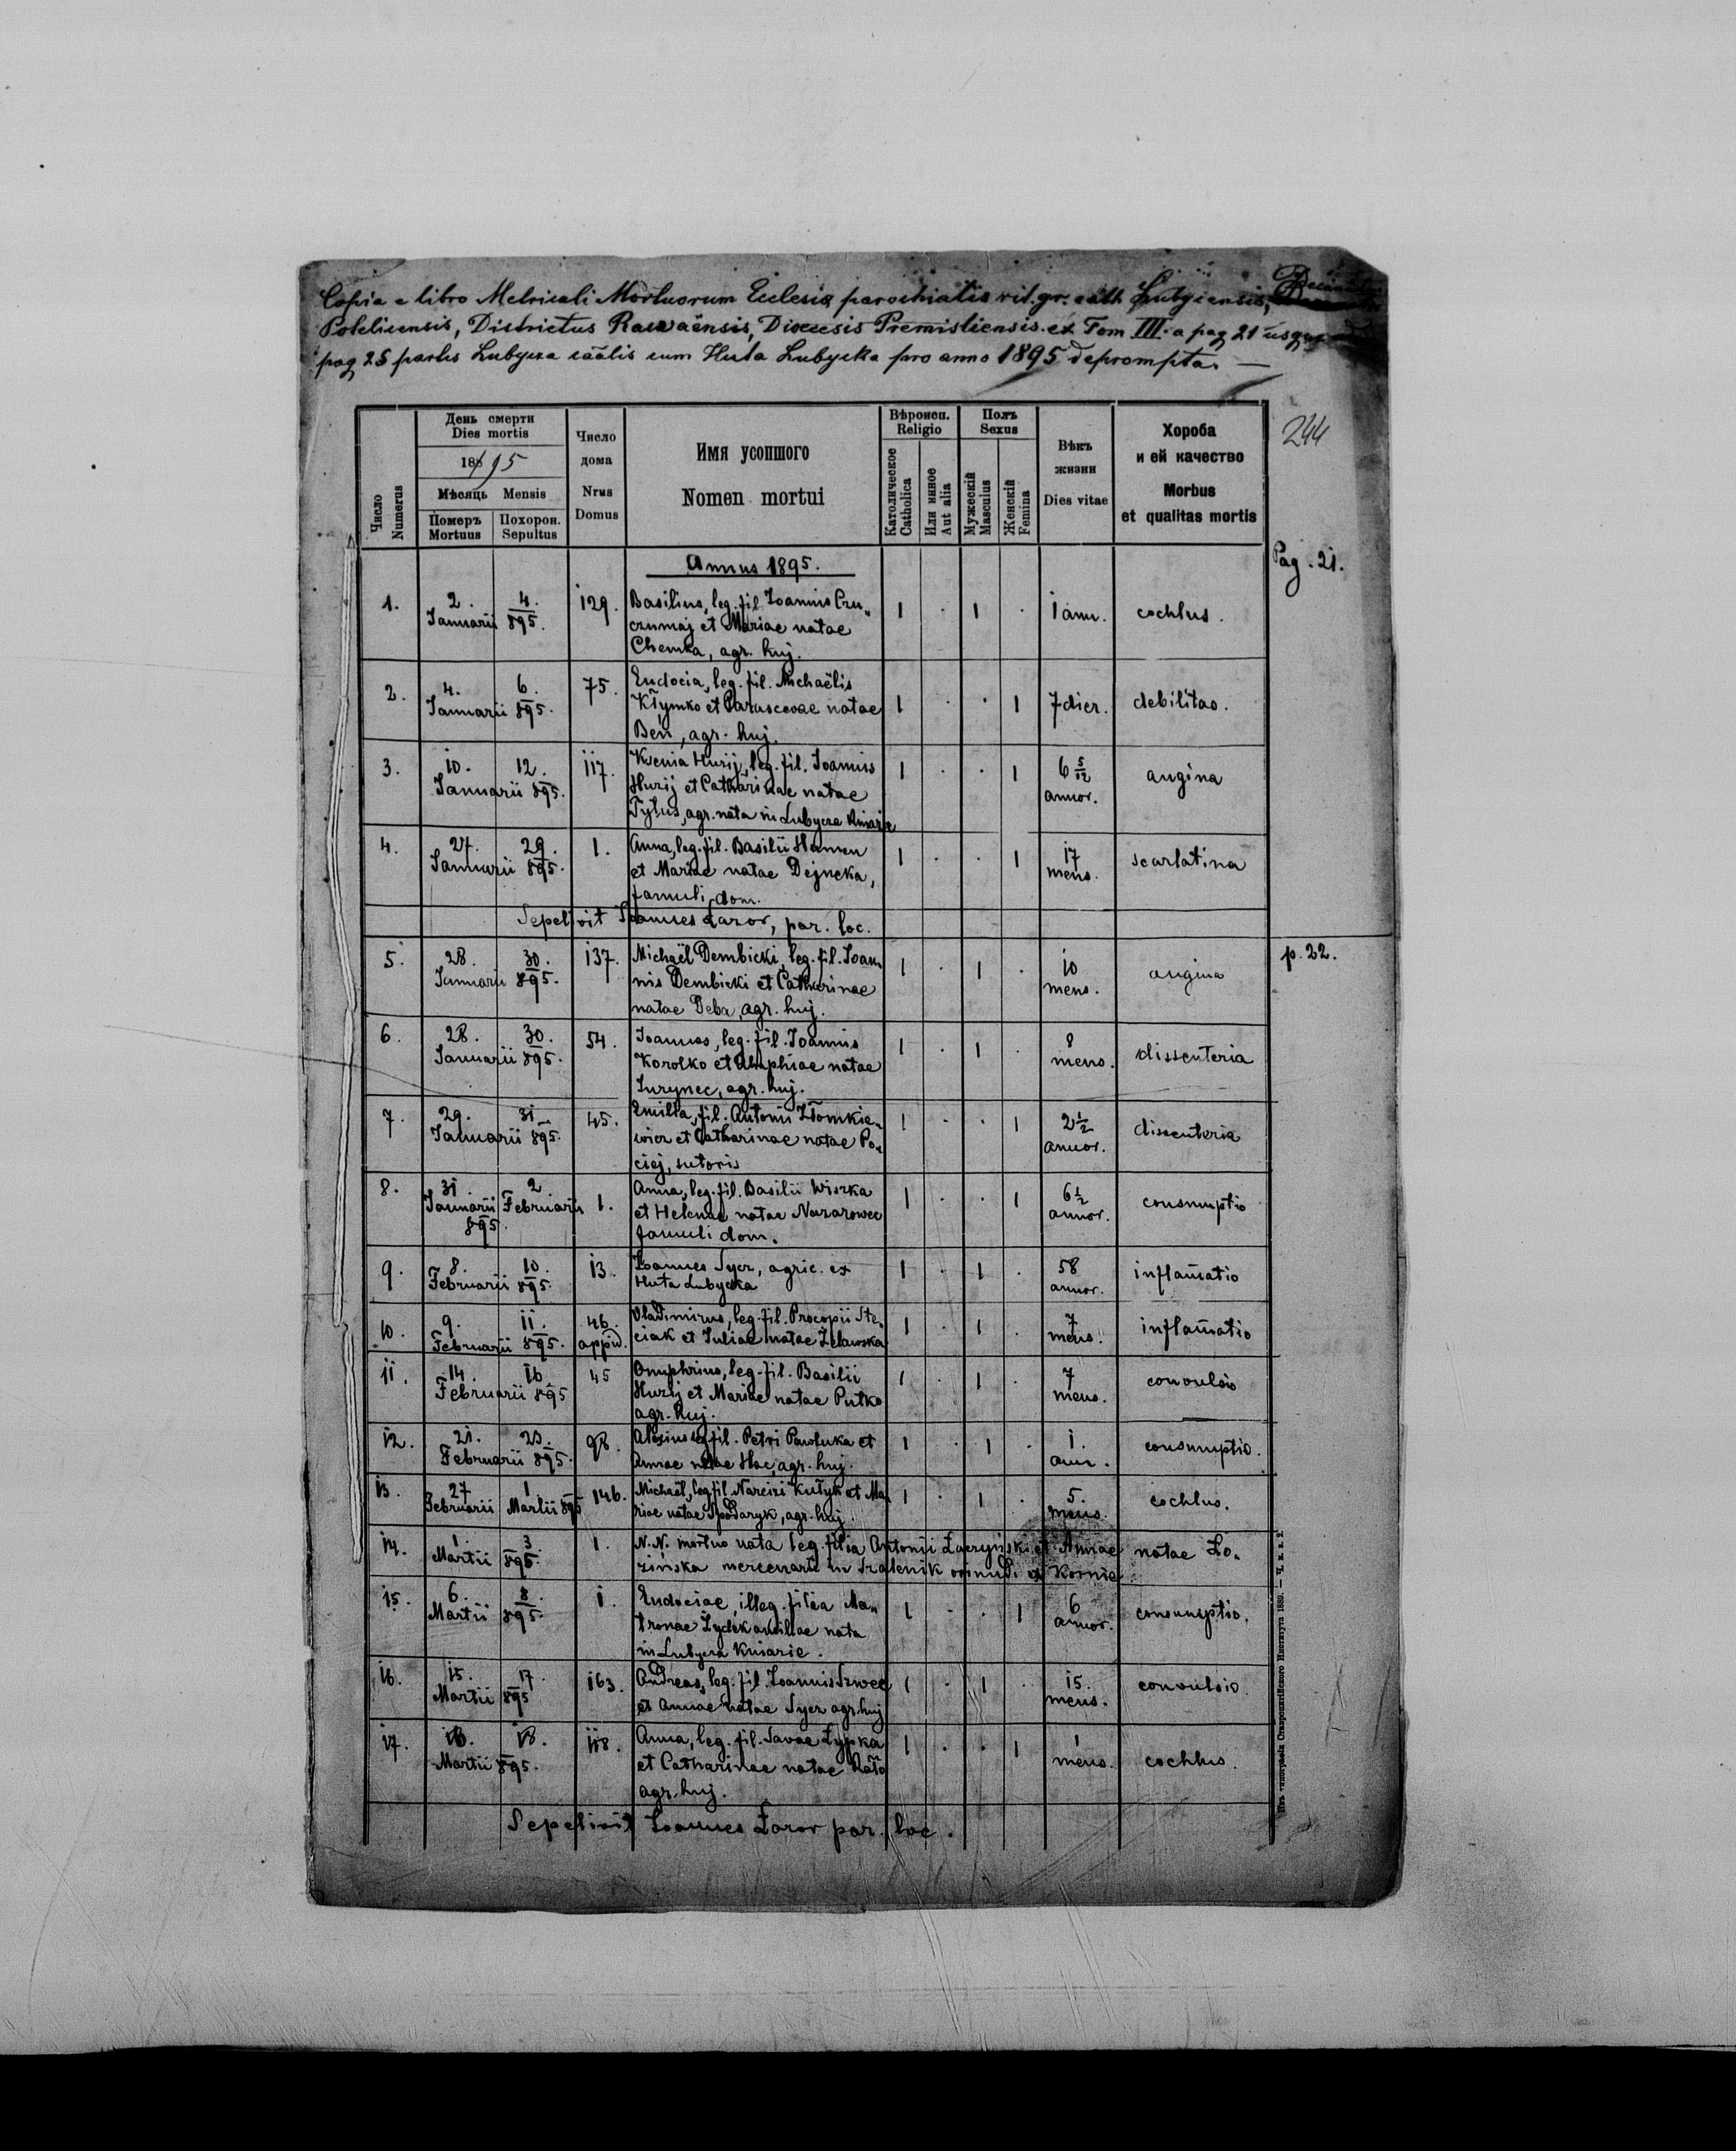 Copia e libro Metricali Mortuorum Ecclesiæ parochialis rit. gr. cath. Lubyciensis, Decanatus
Potelicensis, Districtus Rawaënsis, Dioecesis Premisliensis ex Tom III. a pag 21 usque ad
pag 25 partis Lubycza cäalis cum Huta Lubycka pro anno 1895 deprompta. —
244
Число
Numerus
День смерти
Dies mortis
1895
Мѣсяць Mensis
Померъ
Mortuus
Похорон.
Sepultus
Число
дома
Nrus
Domus
Имя усопшого
Nomen mortui
Вѣроисп.
Religio
Католическое
Catholica
Или инное
Aut alia
Полъ
Sexus
Мужескій
Masculus
Женскій
Femina
Вѣкъ
жизни
Dies vitae
Хороба
и ей качество
Morbus
et qualitas mortis
Annus 1895.
Pag. 21.
1. 2. 4. 129. Basilius, leg. fil. Joannis Czu„ 1 . 1 . 1 ann. cochlus.
Januarii 895. czumaj et Mariae natae
Chemka, agr. huj.
2. 4. 6. 75. Eudocia, leg. fil. Michaëlis
Januarii 895. Kłymko et Parascevae natae 1 . . 1 7 dier. debilitas.
Beń, agr. huj.
3. 10. 12. 117. Ksenia Hurij, leg. fil. Joannis 1 . . 1 6 5/12 angina
Januarii 895. Hurij et Catharinae natae annor.
Tytus, agr. nata in Lubycza Kniazie
4. 27. 29. 1. Anna, leg. fil. Basilii Hamen 1 . . 1 17 scarlatina
Januarii 895. et Mariae natae Dejneka, mens.
famuli dom.
Sepelivit Joannes Łazor, par. loc.
5. 28. 30. 137. Michaël Dembicki, leg. fil. Joan„ 1 . 1 . 10 angina p. 22.
Januarii 895. nis Dembicki et Catharinae mens.
natae Deba, agr. huj.
6. 28. 30. 54. Joannes, leg. fil. Joannis 1 . 1 . 8 dissenteria
Januarii 895. Korolko et Anaphiae natae mens.
Jurynec, agr. huj.
7. 29. 31. 45. Emilia, fil. Antonii Złomkie„ 1 . . 1 2½ dissenteria
Januarii 895. wicz et Catharinae natae Po„ annor.
ciej, sutoris
8. 31. 2. 1. Anna, leg. fil. Basilii Wiszka 1 . . 1 6½ consumptio
Januarii Februarii et Helenae natae Nazarowec annor.
895. famuli dom.
9. 8. 10. 13. Joannes Syer, agric. ex 1 . 1 . 58 inflam̄atio
Februarii 895. Huta Lubycka annor.
10. 9. 11. 46. Vladimirus, leg. fil. Procopii Ste„ 1 . 1 . 7 inflam̄atio
Februarii 895. oppid. ciak et Juliae natae Zelawska mens.
11. 14. 16. 45 Onuphrius, leg. fil. Basilii 1 . 1 . 7 convulsio
Februarii 895 Hurij et Mariae natae Putko mens.
agr. huj.
12. 21. 23. 98. Alexius leg fil. Petri Pawluka et 1 . 1 . 1. consumptio.
Februarii 895. Annae natae Hac, agr. huj. ann.
13. 27 1. 146. Michaël, leg fil. Narcisi Kutyk et Ma„ 1 . 1 . 5. cochlus.
Februarii Martii 895 riae natae Spodaryk, agr. huj. mens.
14. 1. 3. 1. N. N. mortuo nata leg. filia Antonii et Annae natae Lo„
Martii 895. zińska mercenarii in Kornie
15. 6. 8. 1. Eudociae, illeg. filia Ma„ 1 . . 1 6 consumptio.
Martii 895. tronae Zydek ancillae nata annor.
in Lubycza Kniazie.
16. 15. 17. 163. Andreas, leg. fil. Joannis Szwec 1 . 1 . 15. convulsio.
Martii 895 et Annae natae Syer agr. huj mens.
17. 16. 18. 118. Anna, leg. fil. Savae Łypka 1 . . 1 1 cochlus.
Martii 895. et Catharinae natae mens.
agr. huj.
Sepelivit Joannes Łazor par. loc.
Изъ типографіи Ставропигійского Института 1889.